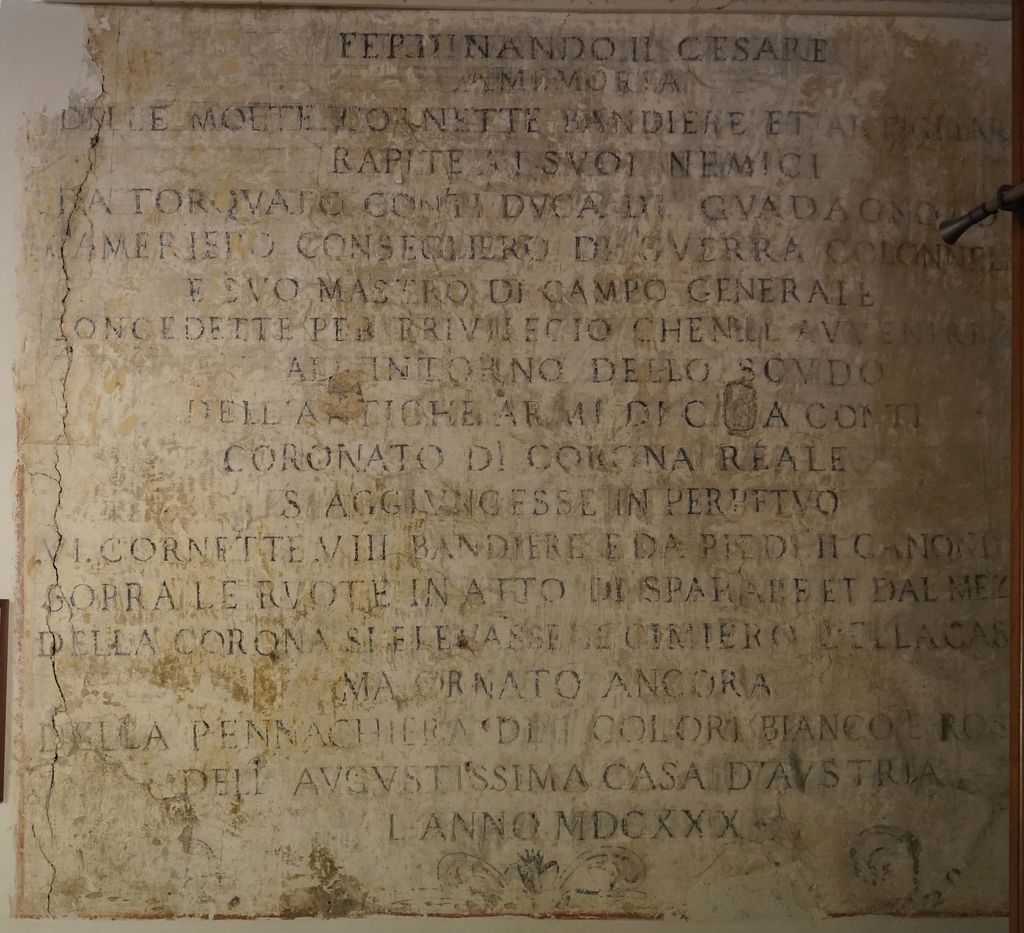 FERDINANDO II CESARE
A MEMORIA
DELLE MOLTE CORNETTE BANDIERE ET
RAPITE AI SVOI NEMICI
DA TORQVATO CONTI DVCA DI GVADAGNOLO
CAMERIERO CONSEGLIERO DI GVERRA COLONNEL
E SVO MASTRO DI CAMPO GENERALE
CONCEDETTE PER PRIVILEGIO CHE NELL AVVENIRE
ALL INTORNO DELLO SCVDO
DELL'ANTICHE ARMI DI CASA CONTI
CORONATO DI CORONA REALE
S AGGIVNGESSE IN PERPETVO
VI CORNETTE VIII BANDIERE E DA PIEDI II CANONI
SOPRA LE RVOTE IN ATTO DI SPARARE ET DAL MEZ
DELLA CORONA SI ELEVASSE IL CIMIERO DELLA CAS
MA ORNATO ANCORA
DELLA PENNACHIERA DE II COLORI BIANCO E ROS
DELL AVGVSTISSIMA CASA D'AVSTRIA
L ANNO MDCXXX